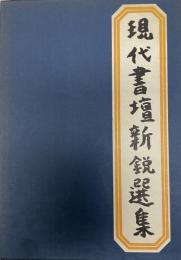 現代書壇新鋭選集